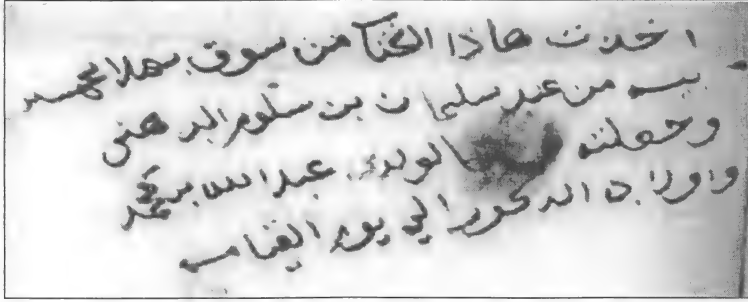 اخذت هاذا الكتاب من سوق بهلا بخمسه
بيسه من عند سليمان بن سلوم الدهني
وجعلته لولدي عبدالله بن محمد
واولاده الدكور الي يوم القيامه